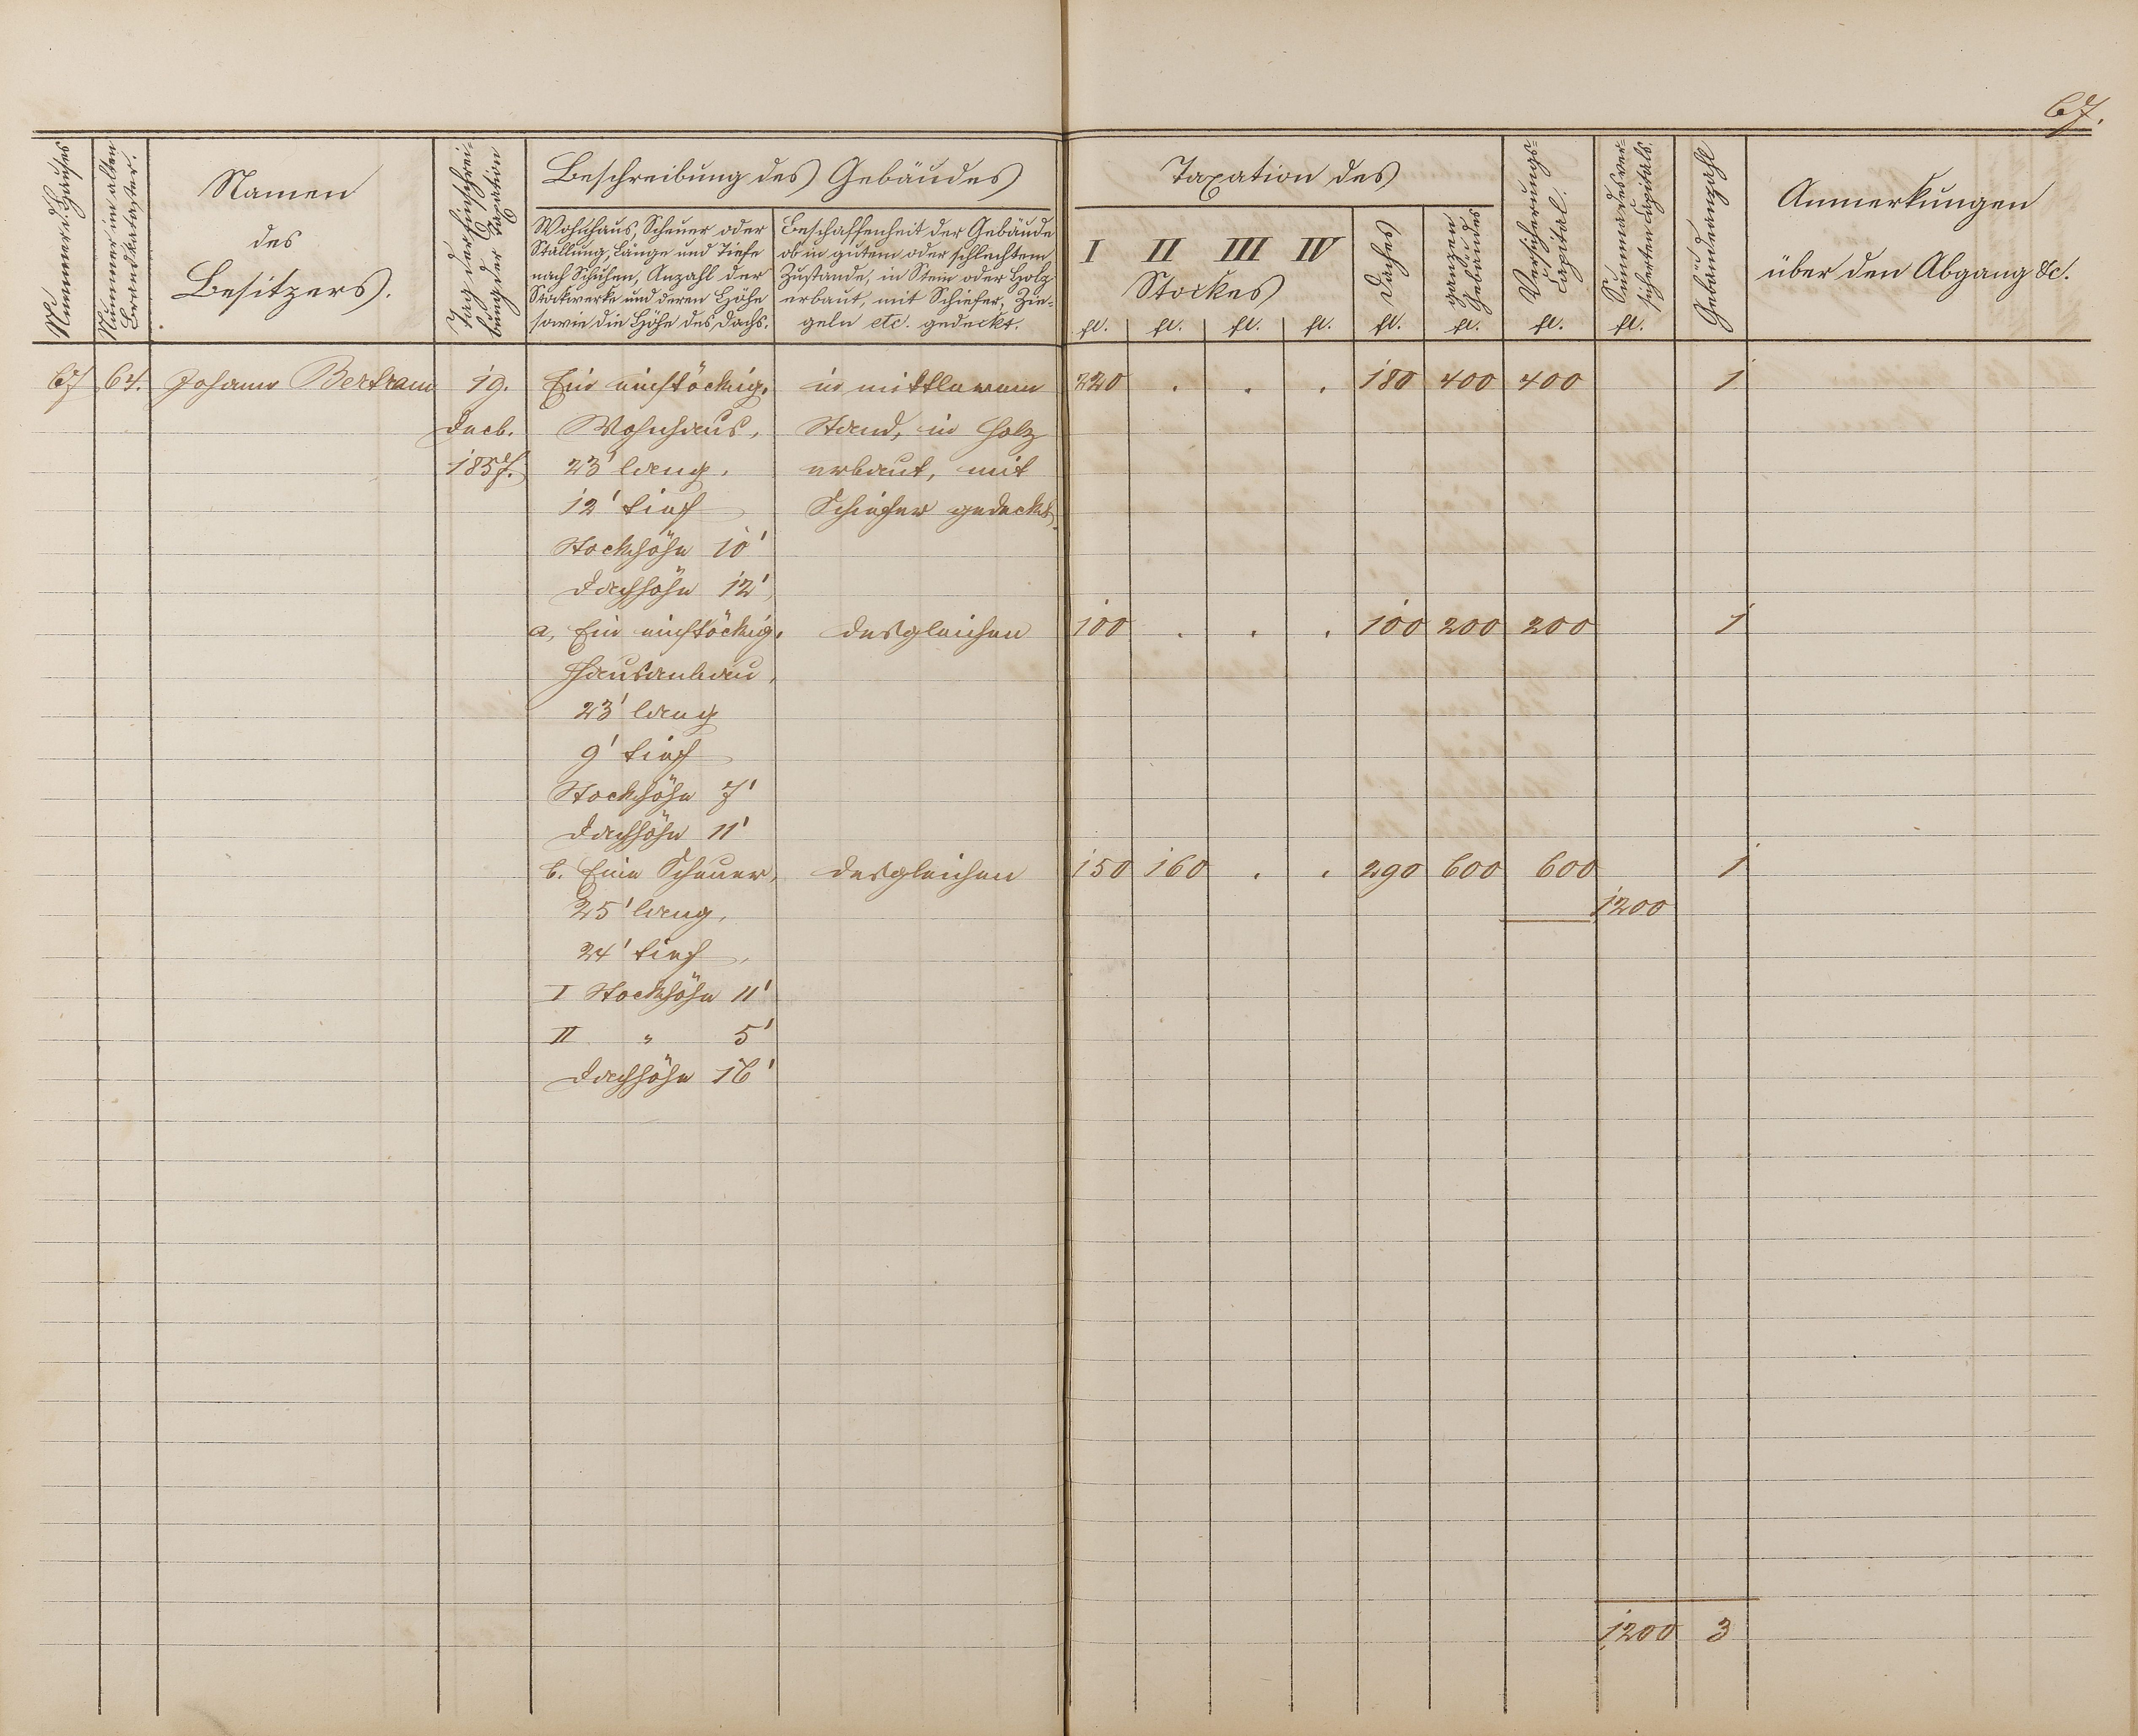 67.
Nummer d. Hauses
Nummer im alten Brandkataster.
Namen
des
Besitzers.
Tag der Einschreibung der Taxation
Beschreibung des Gebäudes
Wohnhaus, Scheuer oder
Stallung, Länge und Tiefe
nach Schuhen, Anzahl der
Stockwerke und deren Höhe
sowie die Höhe des Dachs.
Beschaffenheit der Gebäude
ob in gutem oder schlechtem
Zustande, in Stein oder Holz
erbaut, mit Schiefer, Zie-
geln etc. gedeckt.
Taxation des
I II III IV
Stockes
Daches
ganzen Gebäudes
Versicherungs-Capital.
Summa des versicherten Capitals.
Gebäudeanzahl
Anmerkungen
über den Abgang &c.
fl. fl. fl. fl. fl. fl. fl. fl.
67 64. Johann Bertram 19. Ein einstöckig. in mittlerem 220 . . . 180 400 400 1
Decb. Wohnhaus, Stand, in Holz
1857. 23' lang, erbaut, mit
12' tief Schiefer gedeckt.
Stockhöhe 10'
Dachhöhe 12'
a, Ein einstöckig. desgleichen 100 . . . 100 200 200 1
Hausanbau,
23' lang
9' tief
Stockhöhe 7'
Dachhöhe 11'
b. Eine Scheuer, desgleichen 150 160 . . 290 600 600 1
25' lang, 1200
24' tief,
I Stockhöhe 11'
II " 5'
Dachhöhe 16'
1200 3